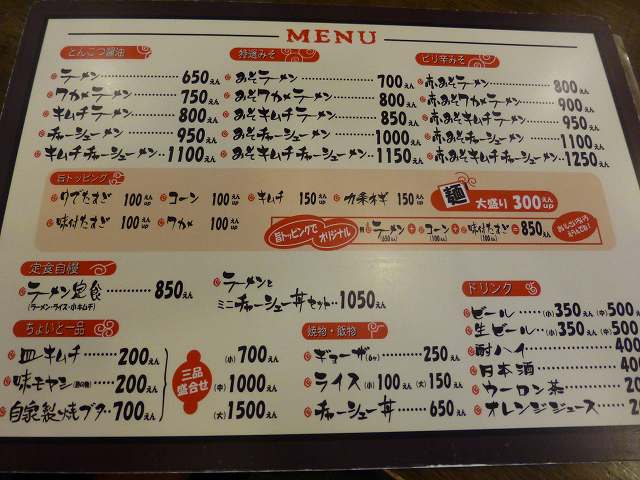 MENU
とんこつ醤油
ラーメン 650えん
ワカメラーメン 750えん
キムチラーメン 800えん
チャーシューメン 950えん
キムチチャーシューメン 1100えん
特選みそ
みそラーメン 700えん
みそワカメラーメン 800えん
みそキムチラーメン 850えん
みそチャーシューメン 1000えん
みそキムチチャーシューメン 1150えん
ピリ辛みそ
赤みそラーメン 800えん
赤みそワカメラーメン 900えん
赤みそキムチラーメン 950えん
赤みそチャーシューメン 1100えん
赤みそキムチチャーシューメン 1250えん
旨トッピング
ゆでたまご 100えんup
コーン 100えんup
キムチ 150えんup
九条ネギ 150えんup
味付たまご 100えんup
ワカメ 100えんup
麺 大盛り 300えんup
旨トッピングで オリジナル
例 ラーメン(650えん)+コーン(100えん)+味付たまご(100えん)=850えん
定食自慢
ラーメン定食 850えん
(ラーメン・ライス・小キムチ)
ラーメンと
ミニチャーシュー丼セット 1050えん
ちょいと一品
皿キムチ 200えん
味モヤシ 200えん
自家製焼ブタ 700えん
三品盛合せ
(小) 700えん
(中) 1000えん
(大) 1500えん
焼物・飯物
ギョーザ(6ヶ) 250えん
ライス (小) 100えん (大) 150えん
チャーシュー丼 650えん
ドリンク
ビール (小) 350えん (中) 500
生ビール (小) 350えん (中) 500
酎ハイ 400
日本酒 400
ウーロン茶 20
オレンジジュース 2